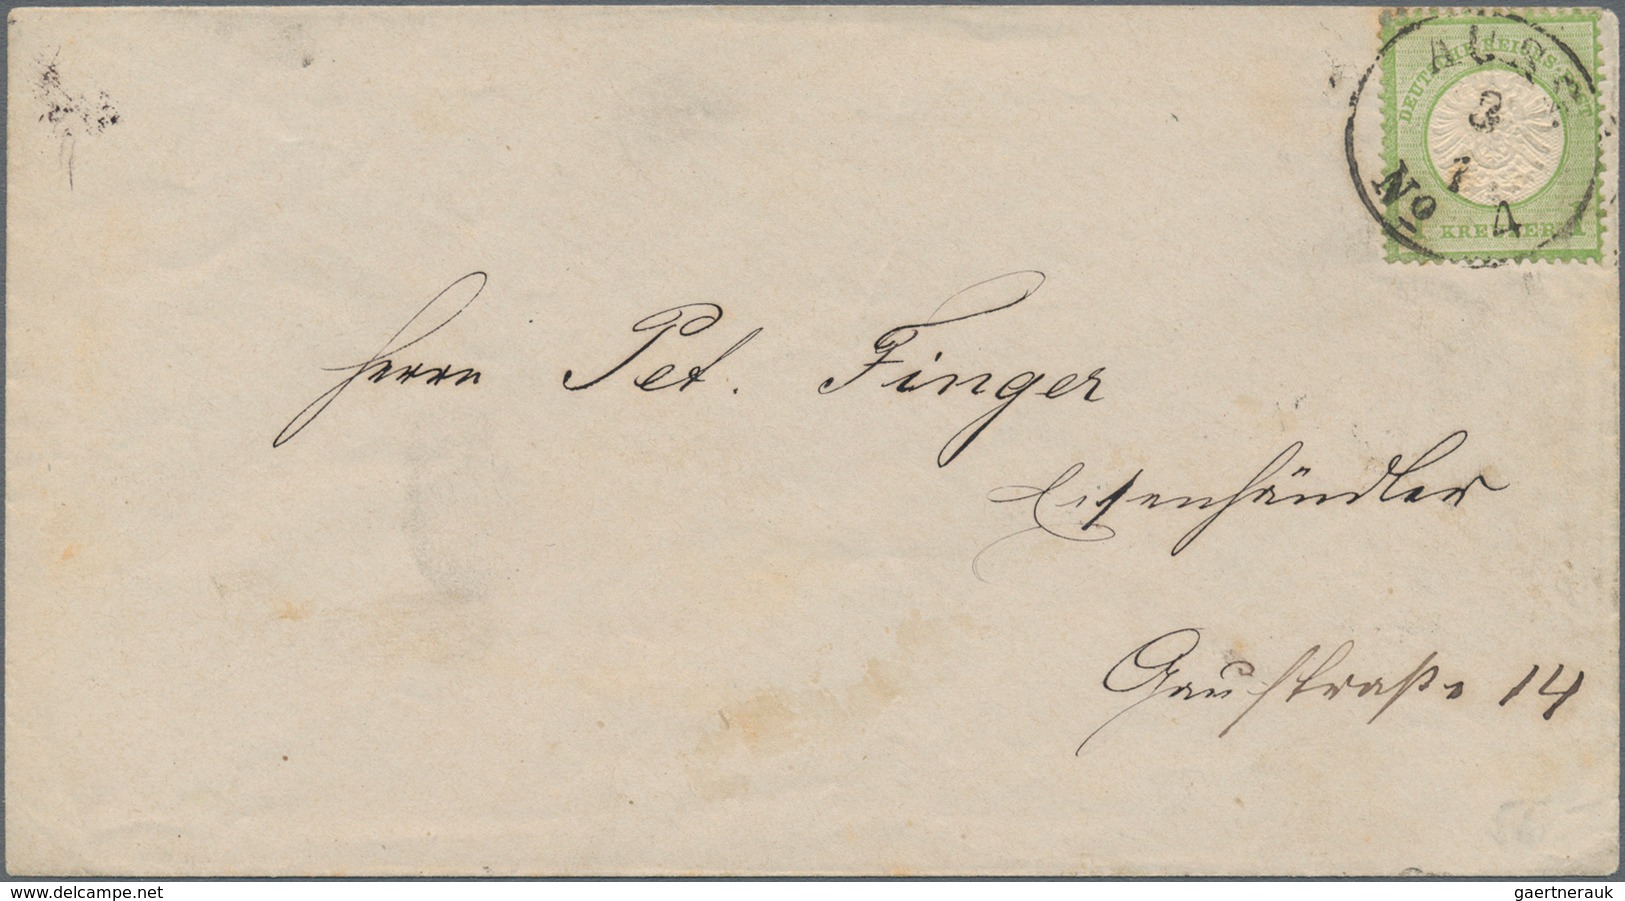 DEUTSCHE REICHS-POST
1 KREUZER 1
3
1
No 4
Herrn Pet. Finger
Eisenhändler
Gaustraße 14
www.delcampe.net
gaertnerauk